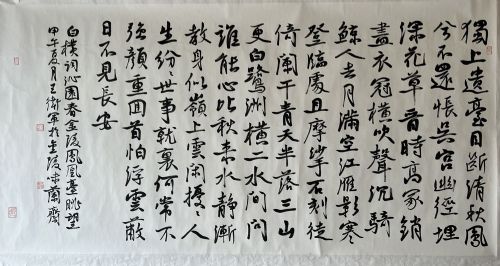 獨上遺臺目斷清秋鳳
兮不還悵吳宮幽徑埋
深花草晉時高冢銷
盡衣冠橫吹聲沉騎
鯨人去月滿空江雁影寒
登臨處且摩挲石刻徙
倚闌干青天半落三山
更白鷺洲橫二水間問
誰能心比秋来水靜漸
教身似嶺上雲閑擾々人
生紛々世事就裏何常不
強顏重回首怕浮雲蔽
日不見長安
白樸詞沁園春金陵鳳凰臺眺望
甲午夏月王衛軍於金陵味蘭齋